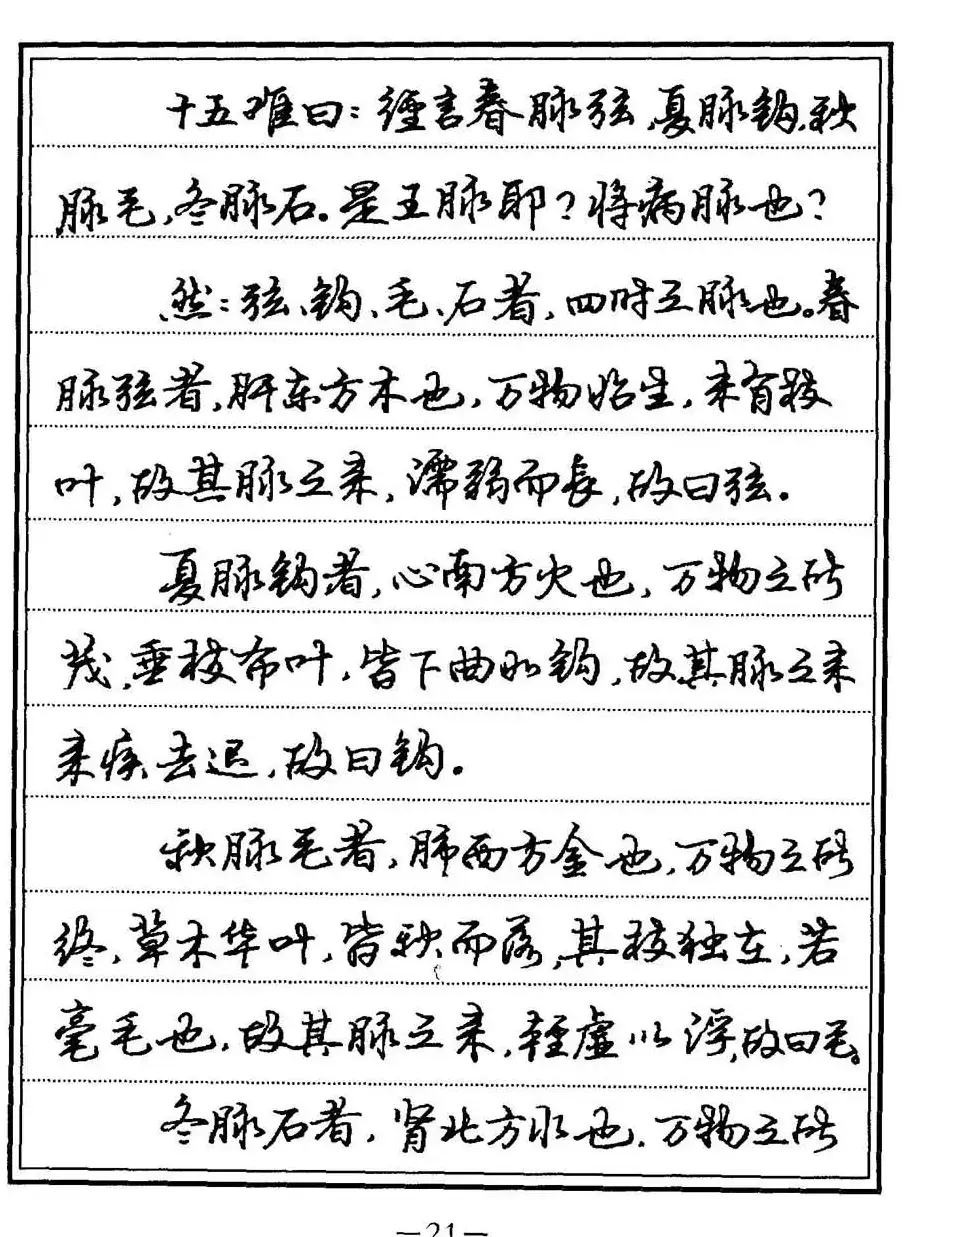 十五难曰：經言春脉弦，夏脉鈎，秋
脉毛，冬脉石。是王脉耶？将病脉也？
然：弦、鈎、毛、石者，四时之脉也。春
脉弦者，肝东方木也，万物始生，未有枝
叶，故其脉之来，濡弱而長，故曰弦。
夏脉鈎者，心南方火也，万物之所
茂，垂枝布叶，皆下曲如鈎，故其脉之来
来疾去迟，故曰鈎。
秋脉毛者，肺西方金也，万物之所
终，草木华叶，皆秋而落，其枝独在，若
毫毛也，故其脉之来，輕虚以浮，故曰毛。
冬脉石者，肾北方水也，万物之所
—21—